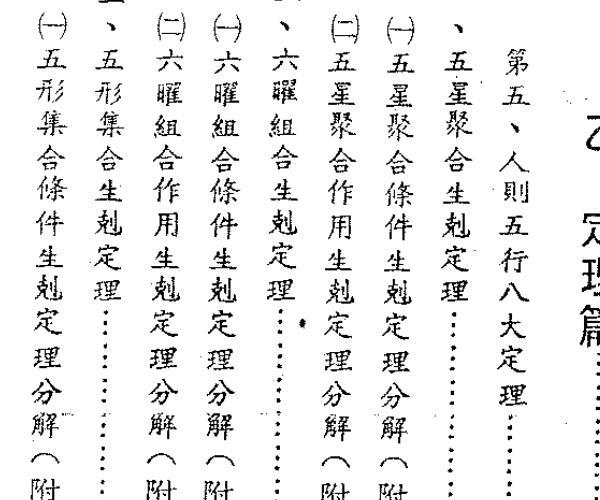 乙 定理篇……
第五、人則五行八大定理……
、五星聚合生剋定理……
㈠五星聚合條件生剋定理分解（附
㈡五星聚合作用生剋定理分解（附
、六曜組合生剋定理……
㈠六曜組合條件生剋定理分解（附
㈡六曜組合作用生剋定理分解（附
、五形集合生剋定理……
㈠五形集合條件生剋定理分解（附